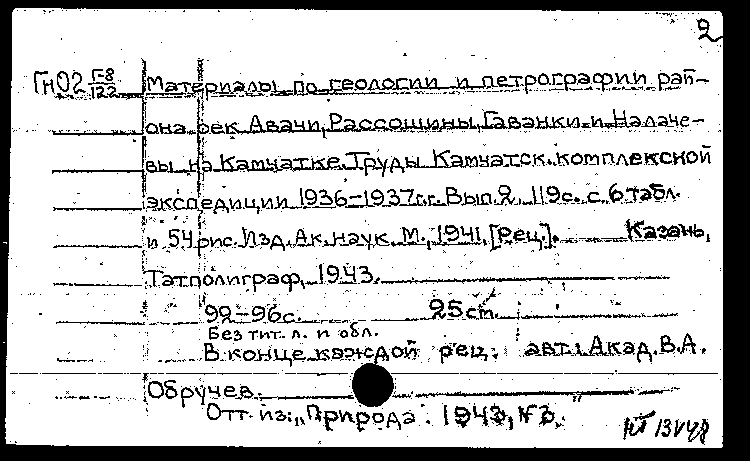 2
Гн02 Г-8/122 Материалы по геологии и петрографии рай-
она рек Авачи, Рассошины, Гаванки и Налаче-
вы на Камчатке. Труды Камчатск. комплексной
экспедиции 1936-1937 г.г. Вып. 2. 119с. с 6 табл.
и 54 рис. Изд. Ак. наук. М., 1941. [Рец.]. Казань,
Татполиграф, 1943.
92-96с. 25 ст.
Без тит. л. и обл.
В конце каждой рец.: авт.: Акад. В.А.
Обручев.
Отт. из: „Природа". 1943, №3.